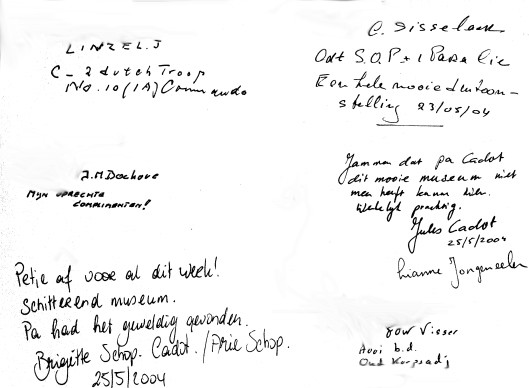 LINZEL. J
C - 2 dutch Troop
No. 10 (IA) Commando
J.M Dockove
MIJN OPRECHTE
COMPLIMENTEN!
Petje af voor al dit week!
Schitterend museum.
Pa had het geweldig gevonden.
Brigitte Schop. Cadot. / Arie Schop.
25/5/2004
C. Disselaar
S.O.P + 1 Para
Een hele mooie dentoon-
stelling 23/05/04
Jammer dat pa Cadot
dit mooie museum niet
meer heeft kunnen zien.
Werkelijk prachtig.
Jules Cadot
25/5/2004
Lianne Jongeneelen
Visser
b.d.
Oud Korpsadj